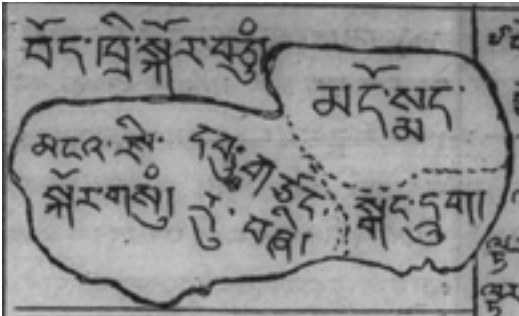 བོད་ཁྲི་སྐོར་བཅུཾ།
མདོ་སྨད་
མངའ་རིས་
སྐོར་གསུཾ།
དབུས་གཙང་
རུ་བཞི།
སྒང་དྲུག།